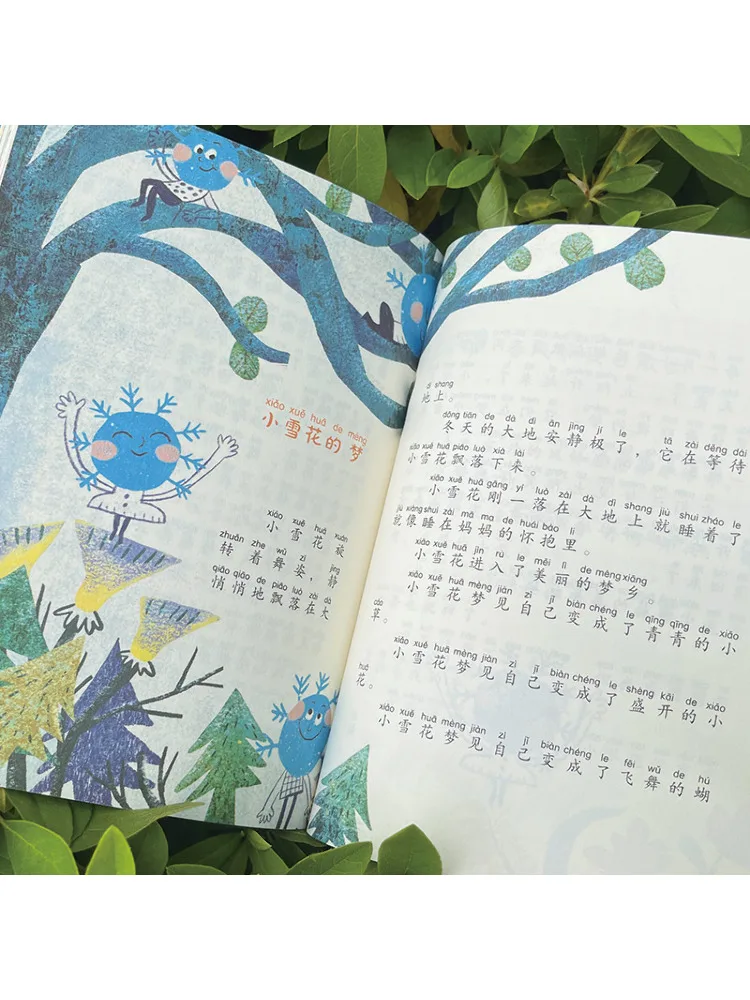 xiǎo xuě huā de mèng
小雪花的梦
xiǎo xuě huā xuán
小雪花旋
zhuǎn zhe wǔ zī jìng
转着舞姿，静
qiāo qiāo de piāo luò zài dà
悄悄地飘落在大
dì shang
地上。
dōng tiān de dà dì ān jìng jí le tā zài děng dài
冬天的大地安静极了，它在等待
xiǎo xuě huā piāo luò xià lái
小雪花飘落下来。
xiǎo xuě huā gāng yí luò zài dà dì shang jiù shuì zháo le
小雪花刚一落在大地上就睡着了
jiù xiàng shuì zài mā ma de huái bào li
就像睡在妈妈的怀抱里。
xiǎo xuě huā jìn rù le měi lì de mèng xiāng
小雪花进入了美丽的梦乡。
xiǎo xuě huā mèng jiàn zì jǐ biàn chéng le qīng qīng de xiǎo
小雪花梦见自己变成了青青的小
cǎo
草。
xiǎo xuě huā mèng jiàn zì jǐ biàn chéng le shèng kāi de xiǎo
小雪花梦见自己变成了盛开的小
huā
花。
xiǎo xuě huā mèng jiàn zì jǐ biàn chéng le fēi wǔ de hú
小雪花梦见自己变成了飞舞的蝴